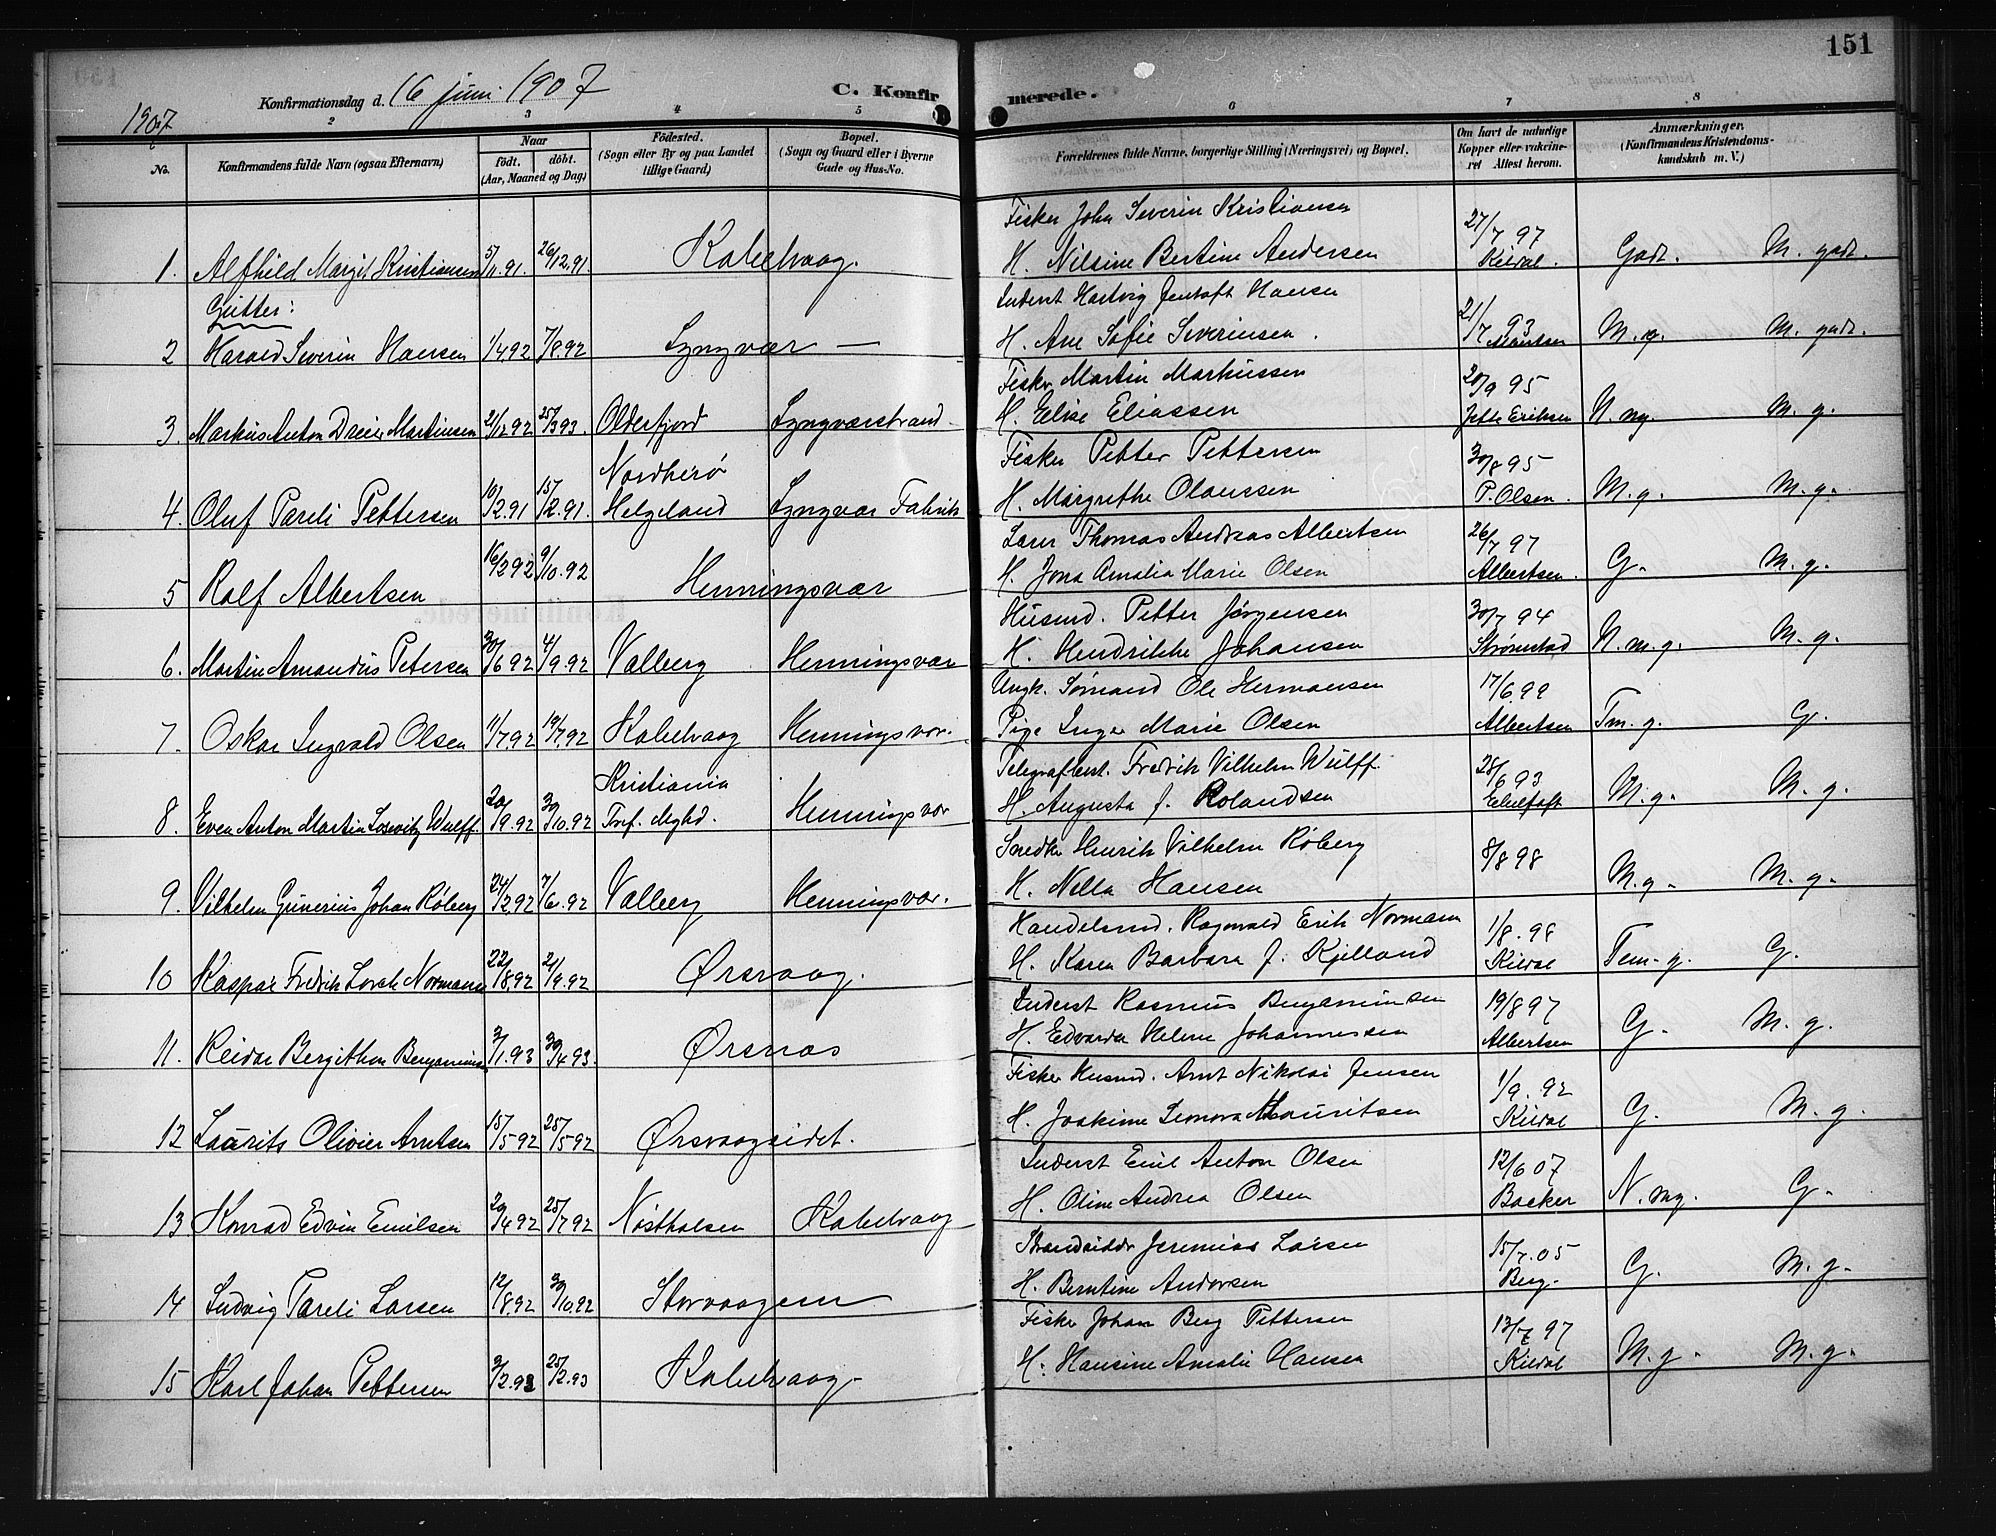 151
Konfirmationsdag d. 16 juni 1907
C. Konfirmerede.
1907
2 3 4 5 6 7 8
No.
Konfirmandens fulde Navn (ogsaa Efternavn)
Naar
født. døbt.
(Aar, Maaned og Dag)
Fødested.
(Sogn eller By og paa Landet
tillige Gaard)
Bopæl.
(Sogn og Gaard eller i Byerne
Gade og Hus-No.
Forældrenes fulde Navne, borgerlige Stilling (Næringsvei) og Bopæl.
Om havt de naturlige
Kopper eller vakcine-
ret Attest herom.
Anmærkninger.
(Konfirmandens Kristendoms-
kundskab m. V.)
Fisker John Severin Kristiansen
1. Alfhild Margit Kristiansen 5/11.91. 26/12.91. Kabelvaag. H. Nilsine Bertine Andersen 27/7 97 Kildal. Godt. M. godt.
Gutter:
Inderst Hartvig Jentoft Hansen
2 Harald Severin Hansen 1/4 92 7/8 92 Lyngvær — H. Ane Sofie Severinsen. 21/7 93 M. g. M. godt.
Fisker Martin Markussen
3. Markus Anton Dreier Martinsen 2/12 92 25/3 93. Olderfjord Lyngværstrand. H. Elise Eliassen 20/9 95 Jette Eriksen N. mg. M. g.
Fisker Petter Pettersen
4. Oluf Pareli Pettersen 10/2 91 15/2.91. Nordherø Helgeland Lyngvær Fabrik H. Margrethe Olaussen 30/8 95 P. Olsen. M. g. M. g.
Lærer Thomas Andreas Albertsen
5 Rolf Albertsen 16/2 92 9/10.92 Henningsvær H. Jona Amalia Marie Olsen 26/7 97 Albertsen. G. M. g.
Husmd. Petter Jørgensen
6. Martin Amandus Petersen 30/6 92 4/9.92 Valberg Henningsvær H. Hendrikke Johansen 30/7 94 Strømstad N. m. g. M. g.
Ungk. Sømand Ole Hermansen
7. Oskar Ingvald Olsen 11/7 92 19/7.92 Kabelvaag Henningsvær. Pige Inger Marie Olsen 17/6 99 Albertsen Tm. g. G.
Telegrafbest. Fredrik Vilhelm Wulff
8. Even Anton Martin Losevitz Wulff. 20/9.92 30/10.92 Kristiania Tref. Mghd. Henningsvær H. Augusta f. Rolandsen 28/6 93 M. g. M. g.
Snedker Henrik Vilhelm Røberg
9. Vilhelm Gunerius Johan Røberg 24/2.92 7/6.92 Valberg Henningsvær. H. Nella Hansen 8/8 98 M. g. M. g.
Handelsmd. Ragnvald Erik Normann
10 Kaspar Fredrik Lorck Normann 22/8.92 2/9.92 Ørsvaag. H. Karen Barbara f. Kjelland 1/8. 98 Kildal Tem. g. G.
Inderst Rasmus Benjaminsen
11. Reidar Bergithon Benjaminsen 3/1.93 30/4.93. Ørsnes H. Edvarda Helene Johannessen 19/8 97 Albertsen G. M. g.
Fisker Husmd. Arnt Nikolai Jensen
12 Laurits Olivier Arntsen 15/5 92 25/5 92 Ørsvaageidet. H. Joakime Leonora Mauritsen 1/9. 92 Kildal G. M. g.
Inderst Emil Anton Olsen
13 Konrad Edvin Emilsen 29/4 92 25/7 92 Nøstholsen Kabelvaag H. Oline Andrea Olsen 12/6 07 Backer N. mg. G.
Strandsidder Jeremias Larsen
14 Ludvig Pareli Larsen 12/8.92 30/10.92 Storvaagen H. Berntine Andersen 15/7.05 Berg. G. M. g.
Fisker Johan Berg Pettersen
15 Karl Johan Pettersen 3/2.93 25/2.93 Kabelvaag. H. Hansine Amalie Hansen 13/7 97 Kildal M. g. M. g.